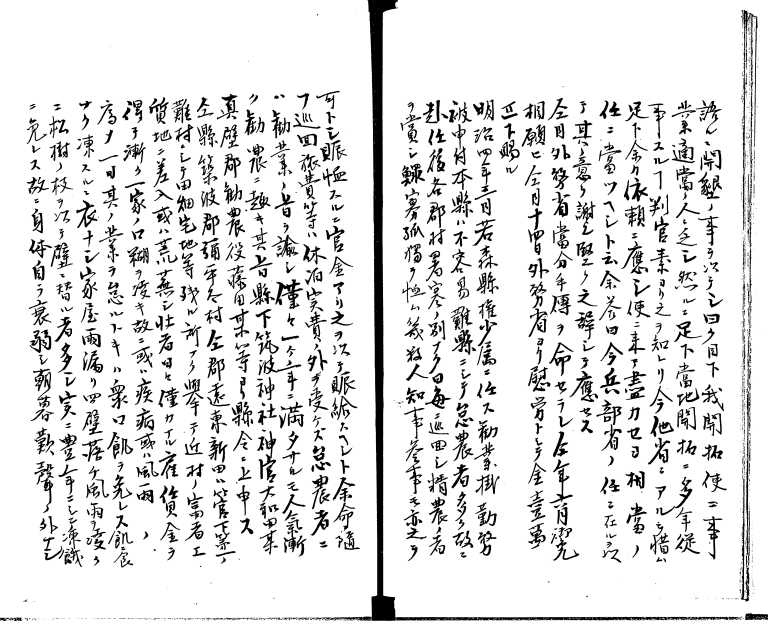 語ルニ開墾ノ事ヲ以テシ曰ク目下我開拓使ニ事
業適當ノ人ニ乏シ然ルニ足下當地開拓ニ多年從
事スル丨判官素ヨリ之ヲ知レリ今他省ニアルヲ惜ム
足下余カ依頼ニ應シ使ニ来テ盡力セヨ相當ノ
任ニ當ツヘシト云余答曰今兵部省ノ任ニ在ルヲ以
テ其ノ意ヲ謝シ堅ク之ヲ辞シテ應セス
仝月外務省當分手傳ヲ命セラレ仝年
相願ヒ仝月十四日外務省ヨリ慰労トシテ金壹萬
疋下賜ル
明治四年三月若森縣権少属ニ任ス勧業掛勤務
被申付本縣ハ不容易難縣ニシテ怠農者多シ故ニ
赴任後各郡村暑寒ノ別ナク日毎巡回シ精農者
ヲ賞シ鰥寡孤獨ヲ恤ム幾数人知事参事モ亦之ヲ
可トシ賑恤スルニ官金アリ之ヲ以テ賑給スヘシト余命随
フ巡回旅費等ハ休泊実費ノ外ヲ受ケス怠農者ニ
ハ勧業ノ旨ヲ諭シ僅々一ケ年ニ満タサルモ人気漸
ク勧農ニ趣キ其旨縣下筑波神社神官大和田某
真壁郡勧農役藤田某等ヨリ縣令ニ上申ス
仝縣築波郡彌平太村仝郡遠東新田ハ管下第一ノ
難村ニシテ田畑宅地等残ル所ナク挙テ近村ノ富者エ
質地ニ差入或ハ荒蕪シ壮者日々僅カナル雇賃金ヲ
得テ漸ク一家ノ口ヲ糊ス疲キ故ニ或ハ疾病或ハ風雨ノ
為ナ一日其ノ業ヲ怠ルトキハ衆口飢ヲ免レス飢食
ナク凍スルニ衣ナシ家屋雨漏リ四壁落ケ風雨ヲ凌ク
ニ松樹ノ枝ヲ以テ壁ニ替ル者多シ実ニ豊年ニシテ凍餓
ニ免レス故ニ身体自ラ衰弱シ朝暮歎聲ノ外ナシ